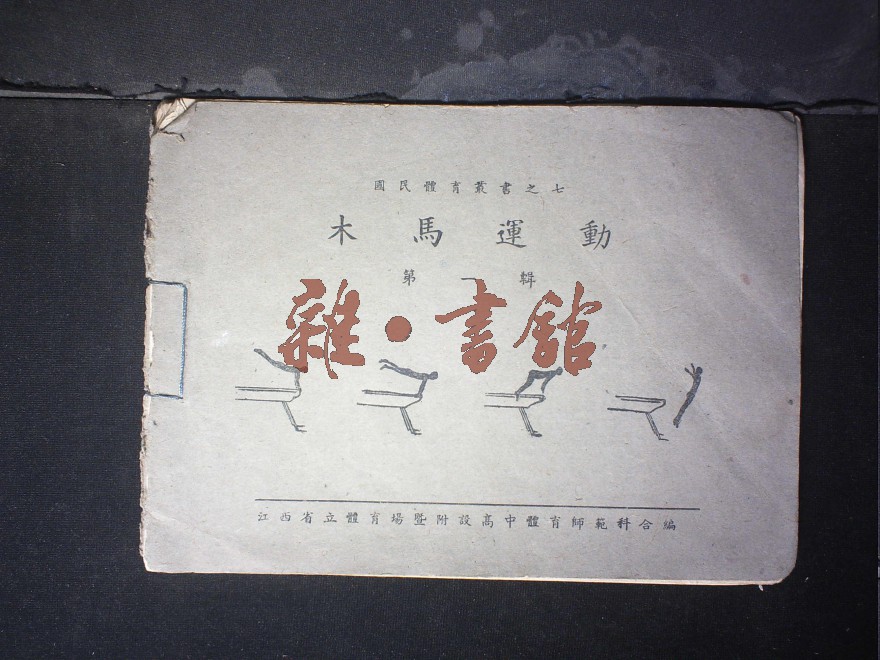 國民體育叢書之七
木馬運動
第一輯
雜·書館
江西省立體育場暨附設高中體育師範科合編